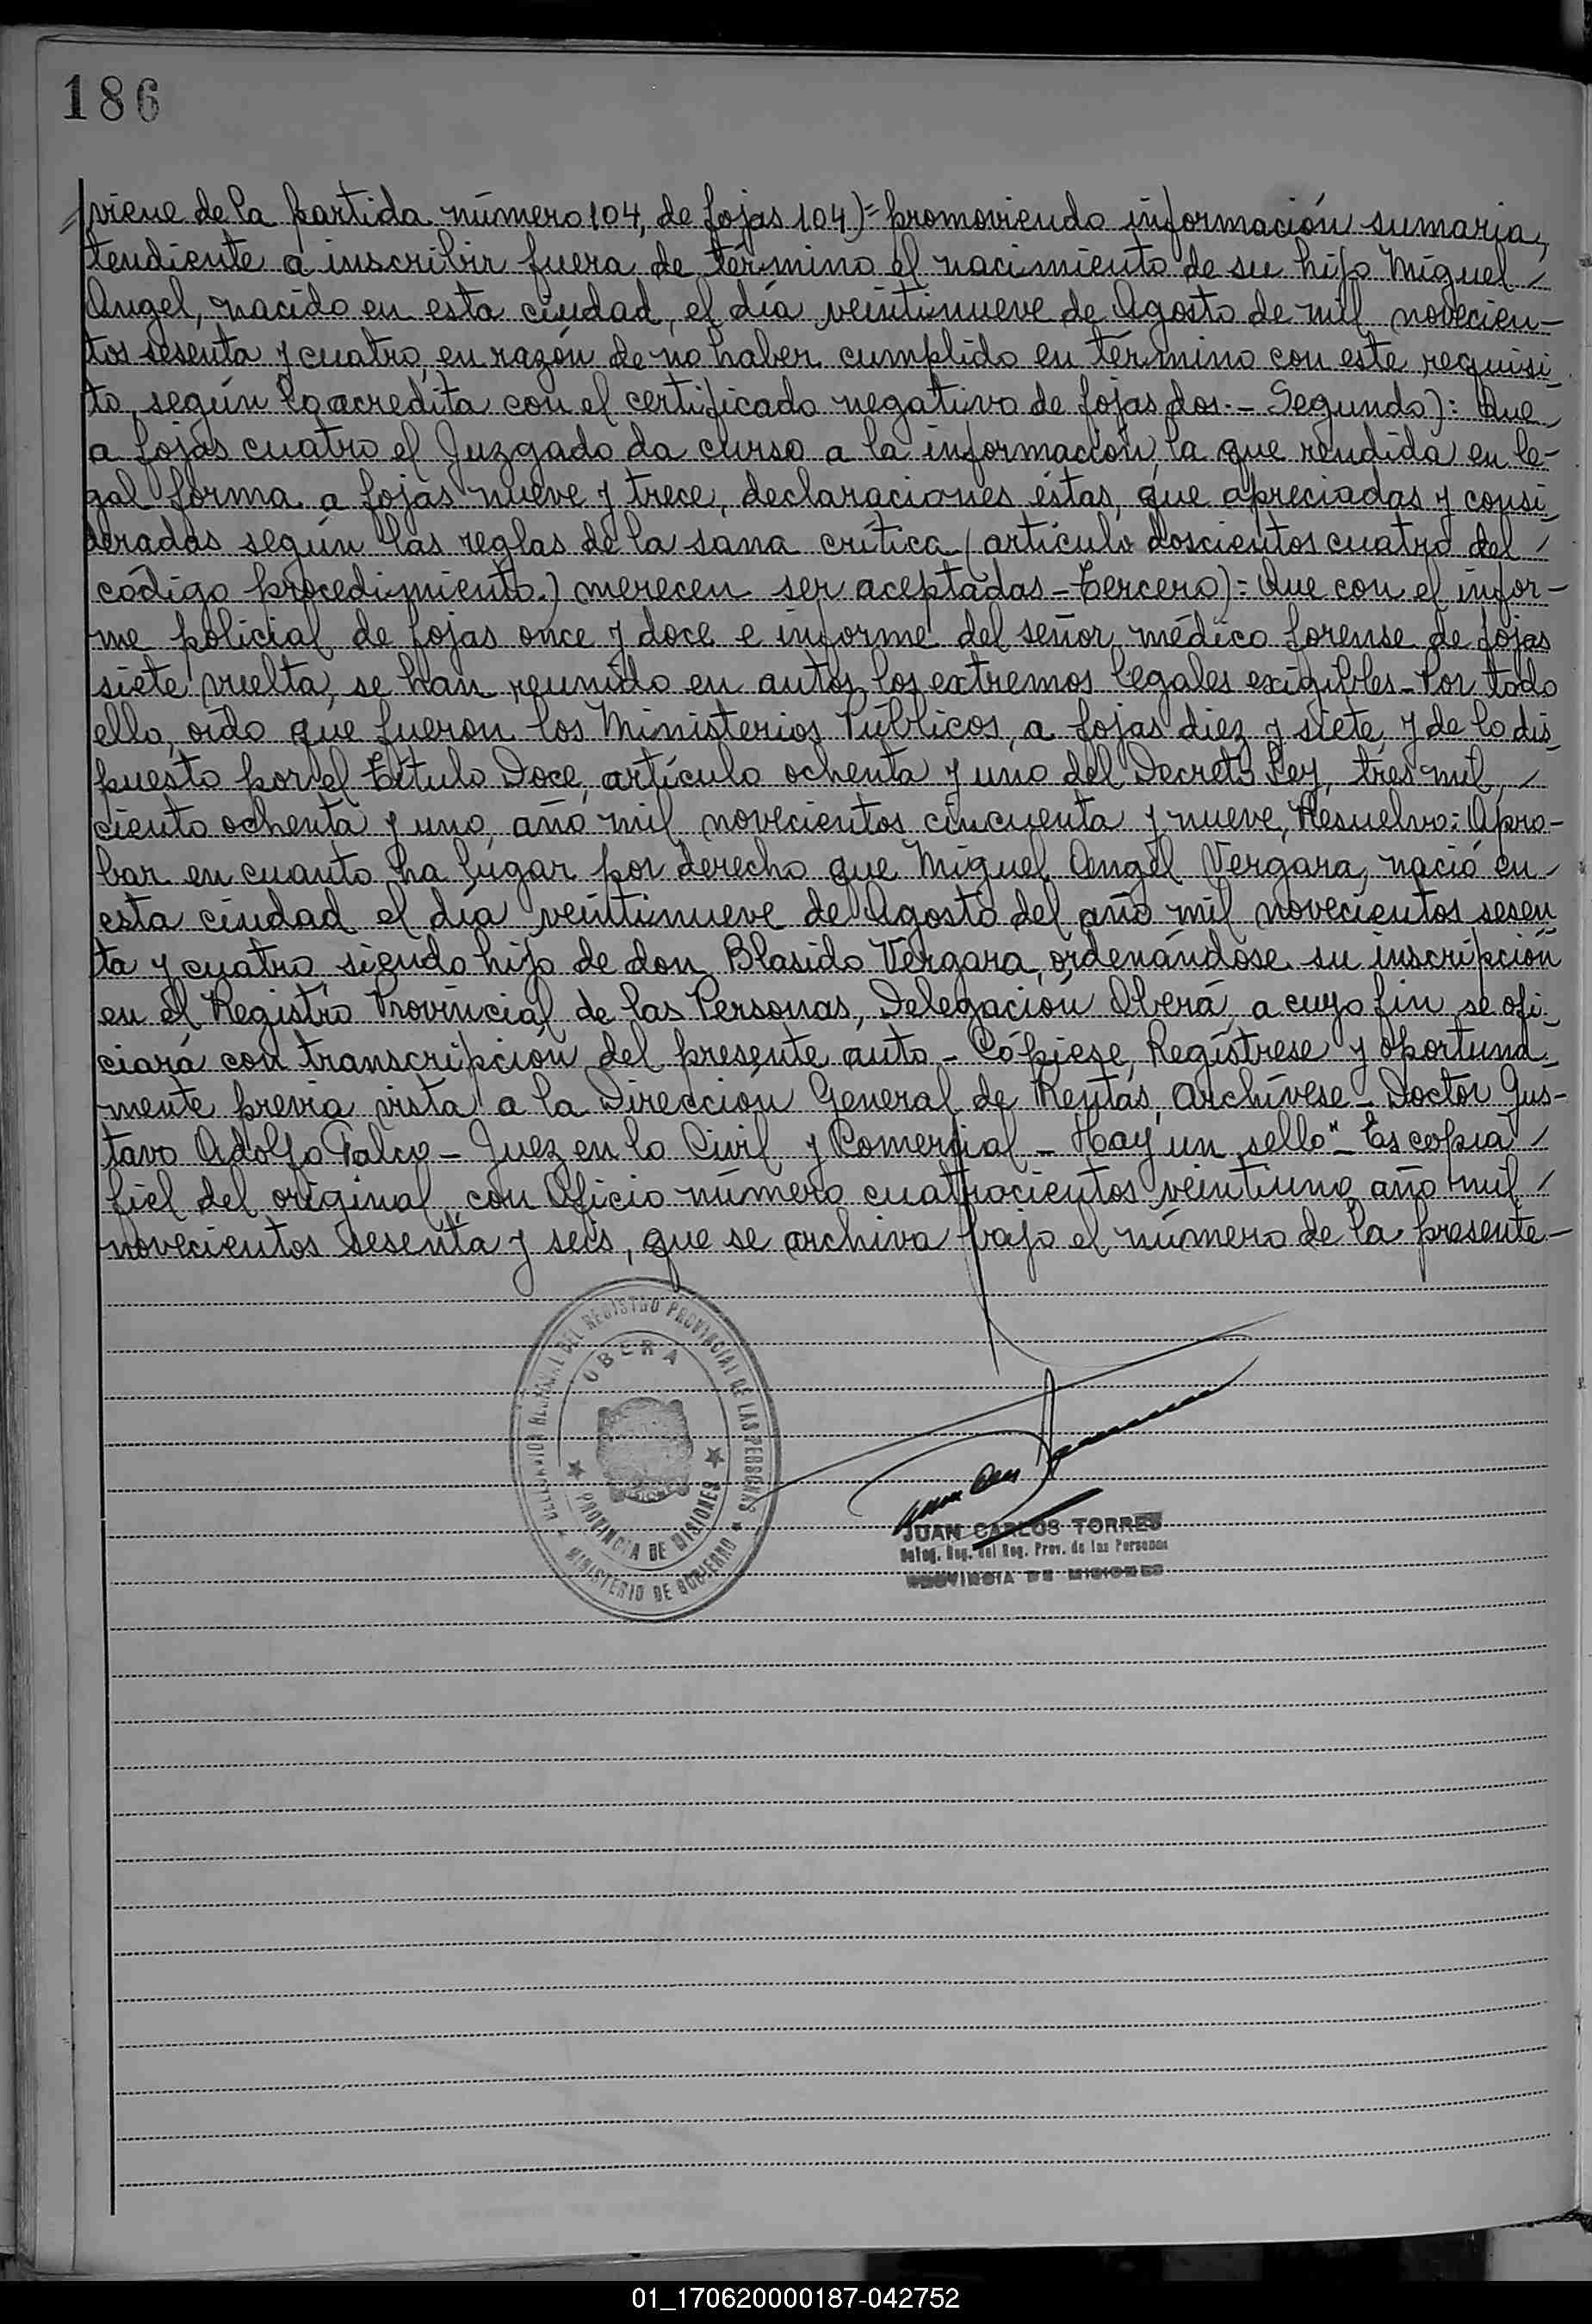 186
viene de la partida número 104, de fojas 104)= promoviendo información sumaria,
tendiente a inscribir fuera de término el nacimiento de su hijo Miguel /
Angel, nacido en esta ciudad, el día veintinueve de Agosto de mil novecien-
tos sesenta y cuatro, en razón de no haber cumplido en término con este requisi_
to, según lo acredita con el certificado negativo de fojas dos.- Segundo): Que
a fojas cuatro el Juzgado da curso a la información, la que rendida en le-
gal forma a fojas nueve y trece, declaraciones éstas, que apreciadas y consi_
deradas según las reglas de la sana crítica (artículo doscientos cuatro del /
código procedimiento.) merecen ser aceptadas - Tercero): Que con el infor-
me policial de fojas once y doce e informe del señor médico forense de fojas
siete vuelta, se han reunido en autos los extremos legales exigibles - Por todo
ello, oído que fueron los Ministerios Públicos, a fojas diez y siete, y de lo dis_
puesto por el Título Doce, artículo ochenta y uno del Decreto Ley, tres mil, /
ciento ochenta y uno, año mil novecientos cincuenta y nueve, Resuelvo: Apro-
bar en cuanto ha lugar por derecho que Miguel Angel Vergara, nació en /
esta ciudad el día veintinueve de Agosto del año mil novecientos sesen
ta y cuatro siendo hijo de don Blasido Vergara, ordenándose su inscripción
en el Registro Provincial de las Personas, Delegación Oberá, a cuyo fin se ofi_
ciará con transcripción del presente auto - Cópiese, Regístrese y oportuna_
mente previa vista a la Dirección General de Rentas, Archívese - Doctor Gus-
tavo Adolfo Falco - Juez en lo Civil y Comercial - Hay un sello" - Es copia /
fiel del original, con Oficio número cuatrocientos veintiuno año mil /
novecientos sesenta y seis, que se archiva bajo el número de la presente -
DELEGACION REGIONAL DEL REGISTRO PROVINCIAL DE LAS PERSONAS
OBERA
PROVINCIA DE MISIONES
MINISTERIO DE GOBIERNO
JUAN CARLOS TORRES
Deleg. Reg. del Reg. Prov. de las Personas
PROVINCIA DE MISIONES
01_170620000187-042752